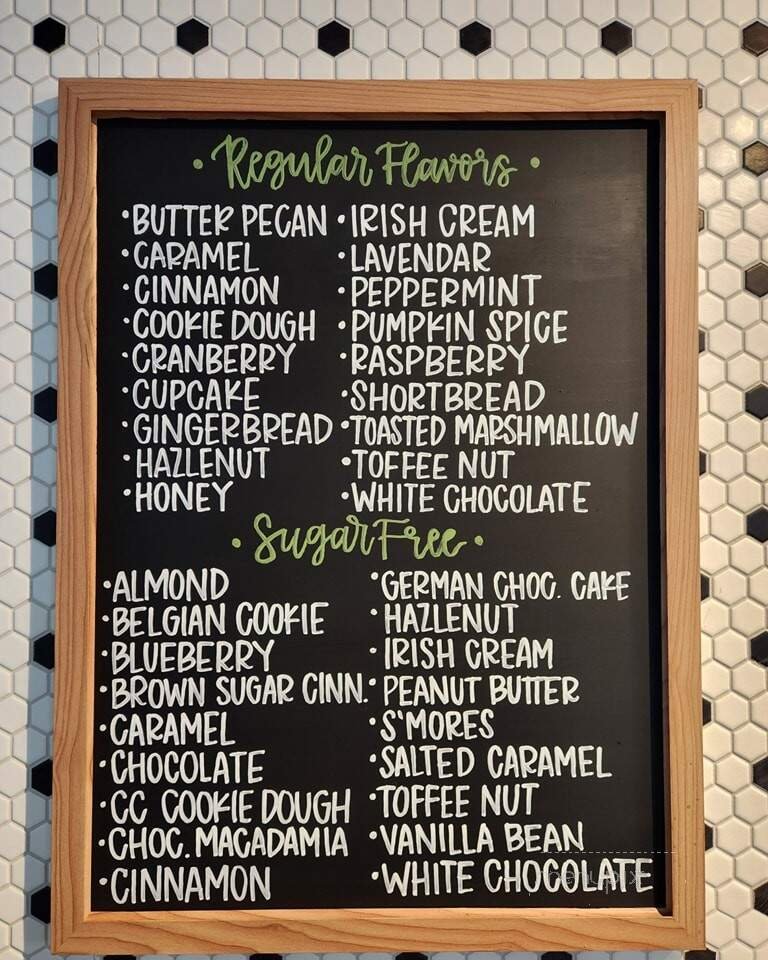 • Regular Flavors •
•BUTTER PECAN
•CARAMEL
•CINNAMON
•COOKIE DOUGH
•CRANBERRY
•CUPCAKE
•GINGERBREAD
•HAZLENUT
•HONEY
•IRISH CREAM
•LAVENDAR
•PEPPERMINT
•PUMPKIN SPICE
•RASPBERRY
•SHORTBREAD
•TOASTED MARSHMALLOW
•TOFFEE NUT
•WHITE CHOCOLATE
• Sugar Free •
•ALMOND
•BELGIAN COOKIE
•BLUEBERRY
•BROWN SUGAR CINN.
•CARAMEL
•CHOCOLATE
•CC COOKIE DOUGH
•CHOC. MACADAMIA
•CINNAMON
•GERMAN CHOC. CAKE
•HAZLENUT
•IRISH CREAM
•PEANUT BUTTER
•S'MORES
•SALTED CARAMEL
•TOFFEE NUT
•VANILLA BEAN
•WHITE CHOCOLATE
menupix